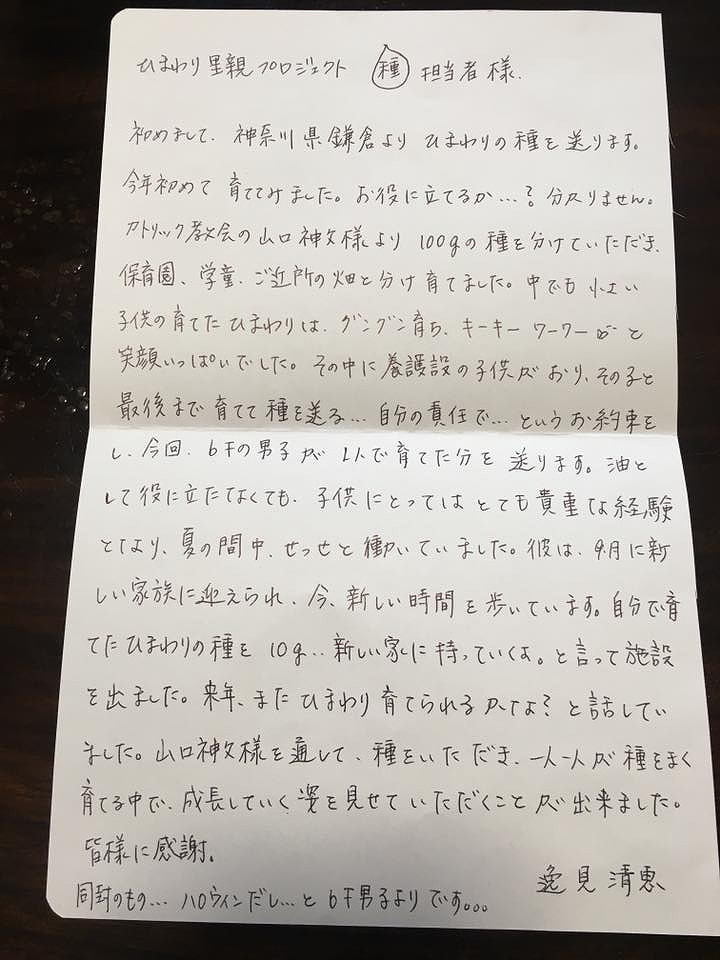 ひまわり里親プロジェクト 種 担当者様.
初めまして、神奈川県鎌倉より ひまわりの種を送ります。
今年初めて育ててみました。お役に立てるか…?分かりません。
カトリック教会の山口神父様より 100gの種を分けていただき、
保育園、学童、ご近所の畑と分け育てました。中でも小さい
子供の育てたひまわりは、グングン育ち、キーキー ワーワー と
笑顔いっぱいでした。その中に養護設の子供がおり、その子と
最後まで育てて種を送る…自分の責任で…というお約束を
し、今回、6才の男子が 1人で育てた分を 送ります。油と
して役に立たなくても、子供にとってはとても貴重な経験
となり、夏の間中、せっせと働いていました。彼は、9月に新
しい家族に迎えられ、今、新しい時間を歩いています。自分で育
てたひまわりの種を 10g‥新しい家に持っていくよ。と言って施設
を出ました。来年、またひまわり育てられるかなよ?と話してい
ました。山口神父様を通して、種をいただき、一人一人が種をまく
育てる中で、成長していく姿を見せていただくことが出来ました。
皆様に感謝。
逸見 清恵
同封のもの… ハロウィンだし…と 6才男子よりです。。。